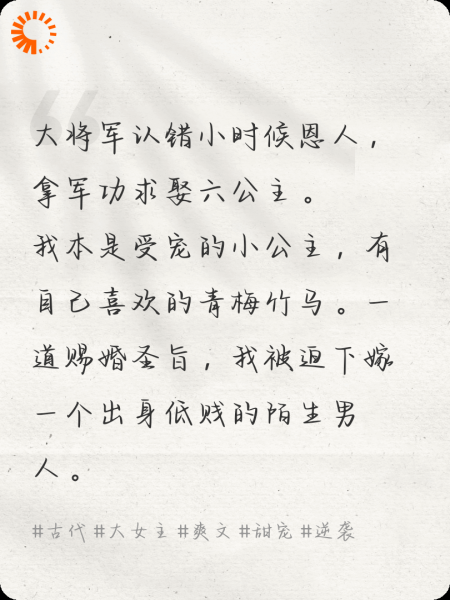 大将军认错小时候恩人，
拿军功求娶六公主。
我本是受宠的小公主，有
自己喜欢的青梅竹马。一
道赐婚圣旨，我被迫下嫁
一个出身低贱的陌生男
人。
#古代 #大女主 #爽文 #甜宠 #逆袭